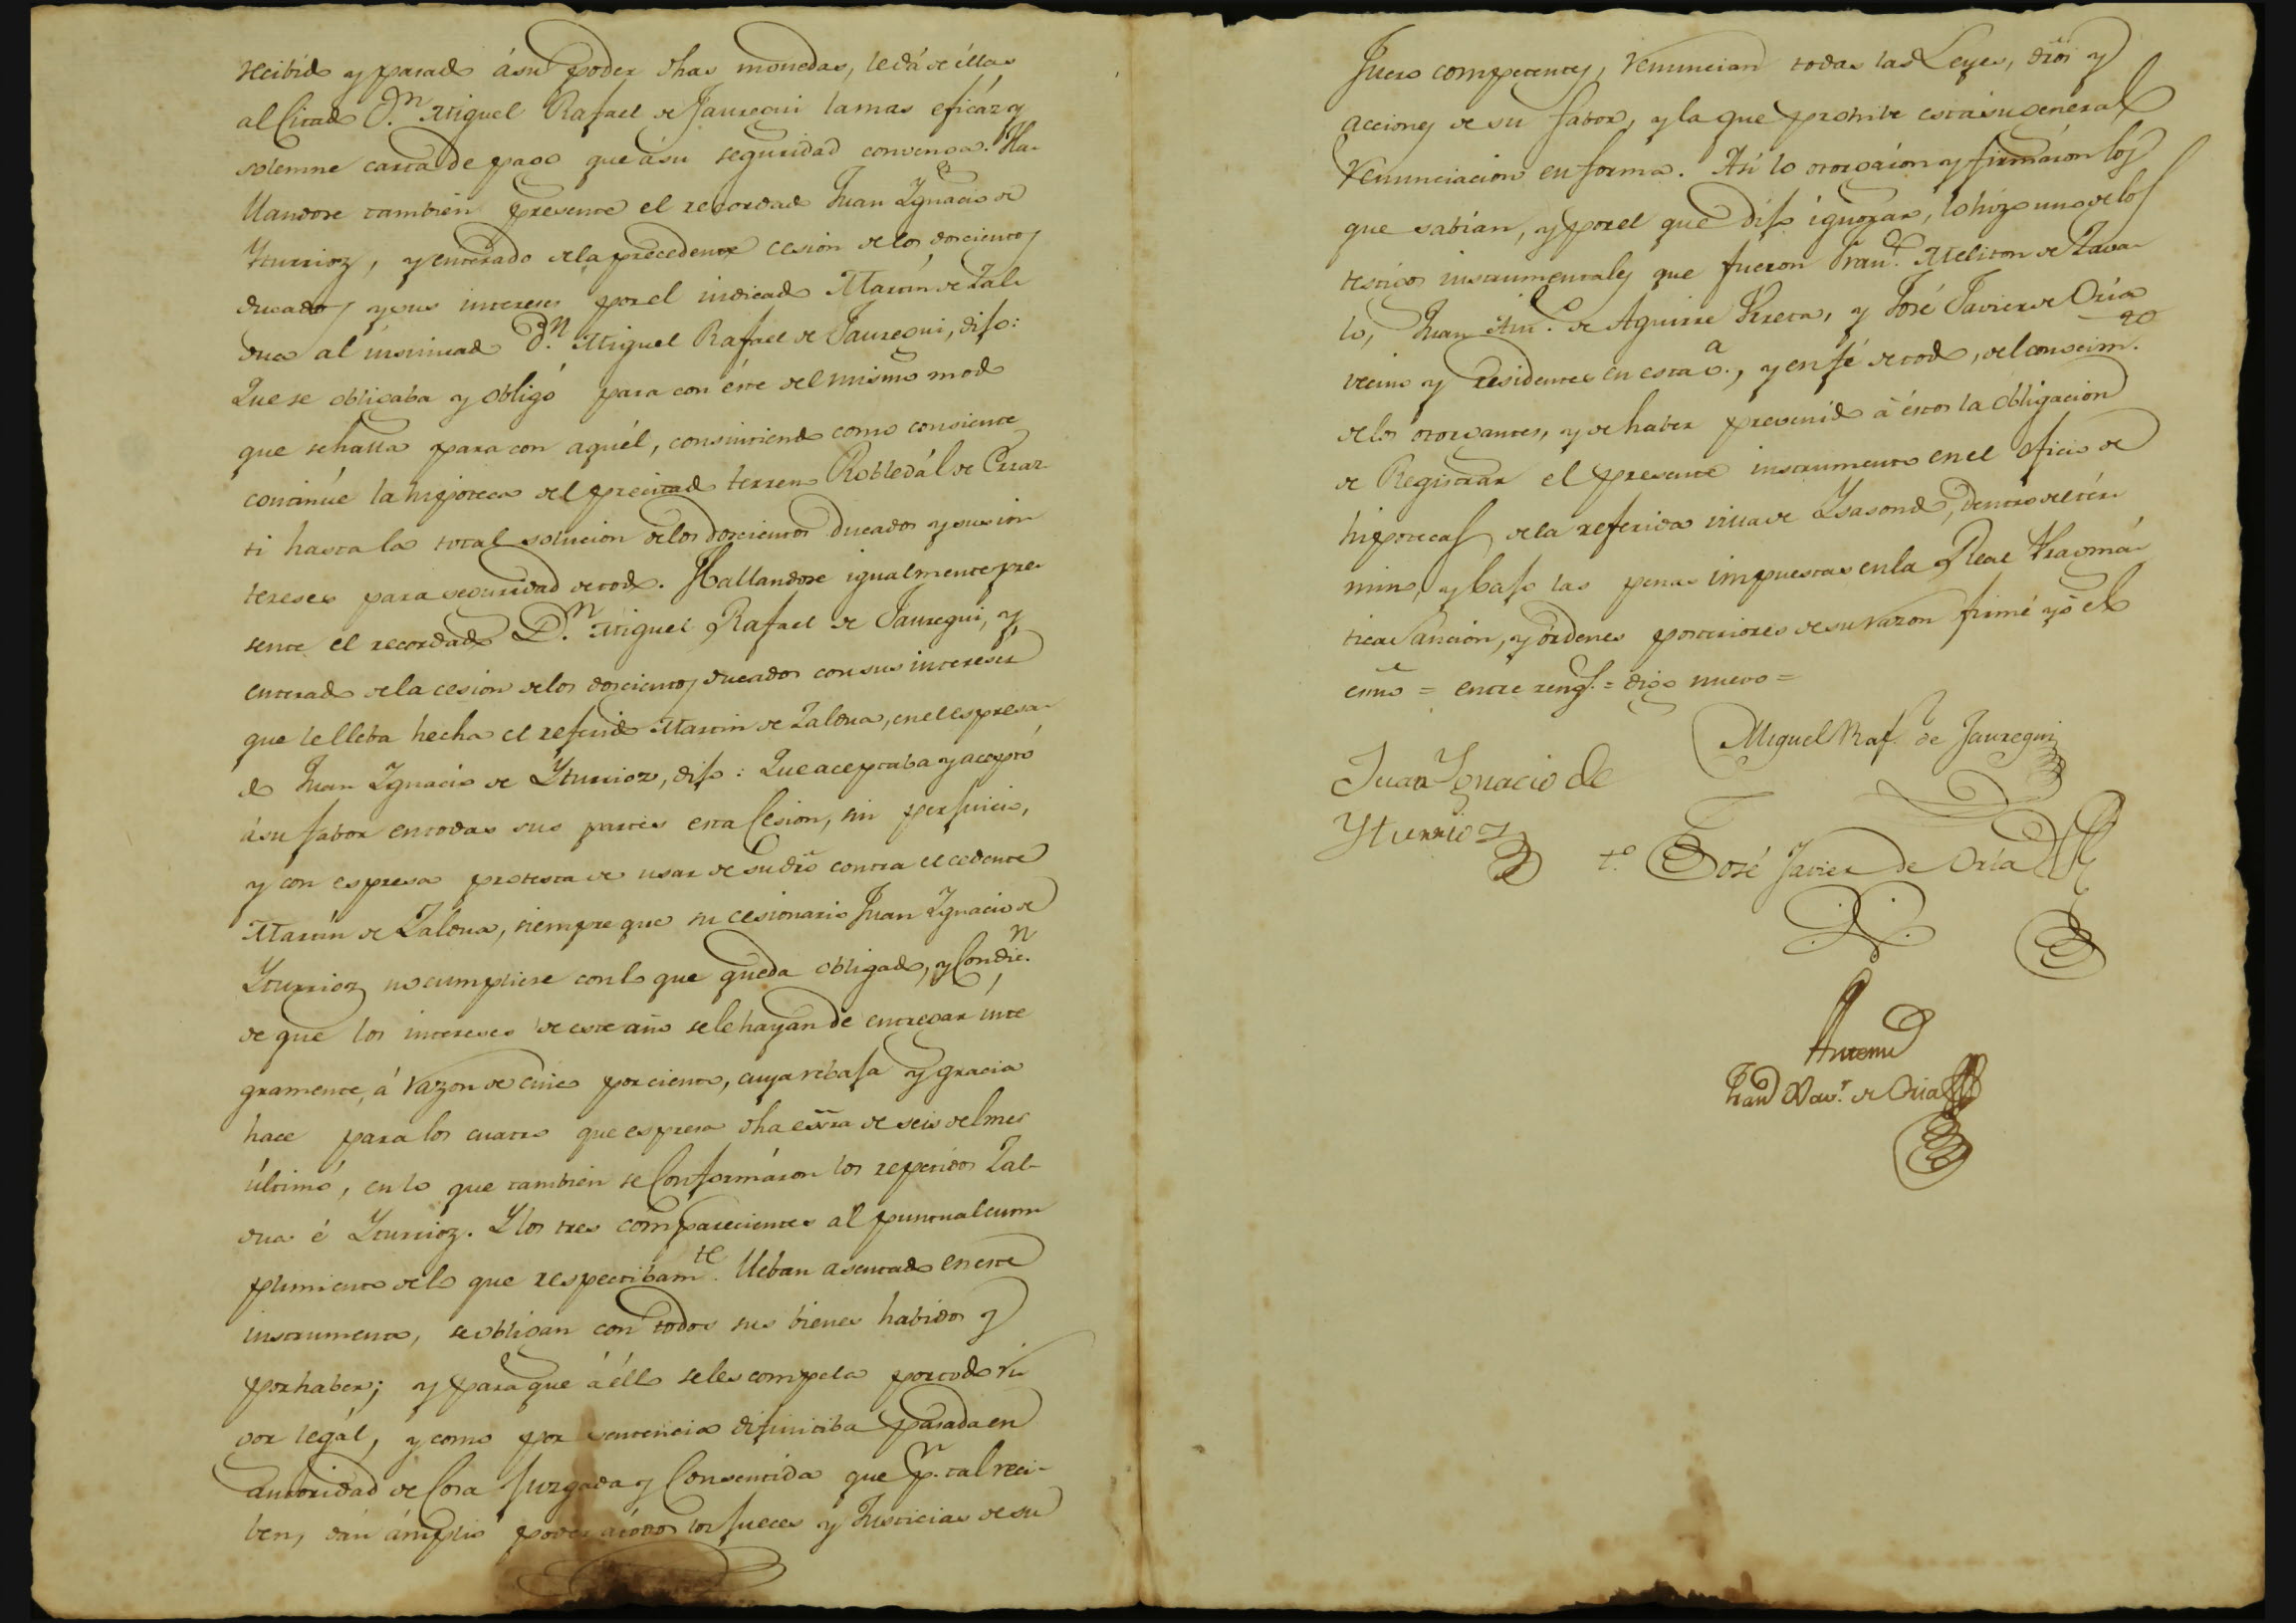 recibido y pasado á su poder dhas monedas, le dá de éllas
al Citado D.n Miguel Rafael de Jauregui la mas eficáz y
solemne carta de pago que á su seguridad convenga. Ha-
llandose tambien presente el recordado Juan Ygnacio de
Yturrioz, y enterado de la precedente cesion de los doscientos
ducados y sus intereses por el indicado Martin de Zal-
dua al insinuado D.n Miguel Rafael de Jauregui, dijo:
Que se obligaba y obligó para con éste del mismo modo
que se halla para con aquél, consintiendo como consiente
continúe la hipoteca del precitado terreno Robledál de Erraz-
ti hasta la total solucion de los doscientos ducados y sus in
tereses para seguridad de todo. Hallandose igualmente pre-
sente el recordado D.n Miguel Rafael de Jauregui, y
enterado de la cesion de los doscientos ducados con sus intereses
que le lleba hecha el referido Martin de Zaldua, en el espresa-
do Juan Ygnacio de Yturrioz, dijo: Que aceptaba y aceptó
á su fabor en todas sus partes esta Cesion, sin perjuicio,
y con espresa protesta de usar de su dro contra el cedente
Martin de Zaldua, siempre que su cesionario Juan Ygnacio de
Yturrioz no cumpliese con lo que queda obligado, y Condic.n
de que los intereses de este año se le hayan de entregar inte
gramente, á razon de cinco por ciento, cuya rebaja y gracia
hace para los cuatro que espresa dha esra de seis del mes
último, en lo que tambien se Conformáron los repetidos Zal-
dua é Yturrioz. Y los tres comparecientes al puntual cum
plimiento de lo que respectibam.te lleban asentado en este
instrumento, se obligan con todos sus bienes habidos y
por haber; y para que á éllo se les compela por todo ri-
gor legál, y como por sentencia difinitiba pasada en
autoridad de Cosa Juzgada y Consentida que p.r tal reci-
ben, dán ámplio poder á todos los Jueces y Justicias de su
fuero competentes, renuncian todas las Leyes, dros y
acciones de su fabor, y la que prohibe esta su general
renunciacion en forma. Asi lo otorgáron y firmáron los
que sabían, y por el que dijo ignorar, lo hizo uno de los
testigos instrumentales que fueron Fran.co Meliton de Zava-
lo, Juan Ant.o de Aguirre Urreta, y José Javier de Oria
vecino y residentes en esta v.a, y en fé de todo, del conocim.to
de los otorgantes, y de haber prevenido á éstos la obligacion
de Registrar el presente instrumento en el oficio de
hipotecas de la referida villa de Ysasondo, dentro del tér-
mino, y bajo las penas impuestas en la Real Pragmá-
tica Sancion, y órdenes posteriores de su razon firmé yo el
esno = entre reng.s = digo nuevo =
Miguel Raf.l de Jauregui
Juan Ygnacio de
Yturrioz
t.o José Javier de Oria
Ante mi
Fran.co Xav.r de Oria